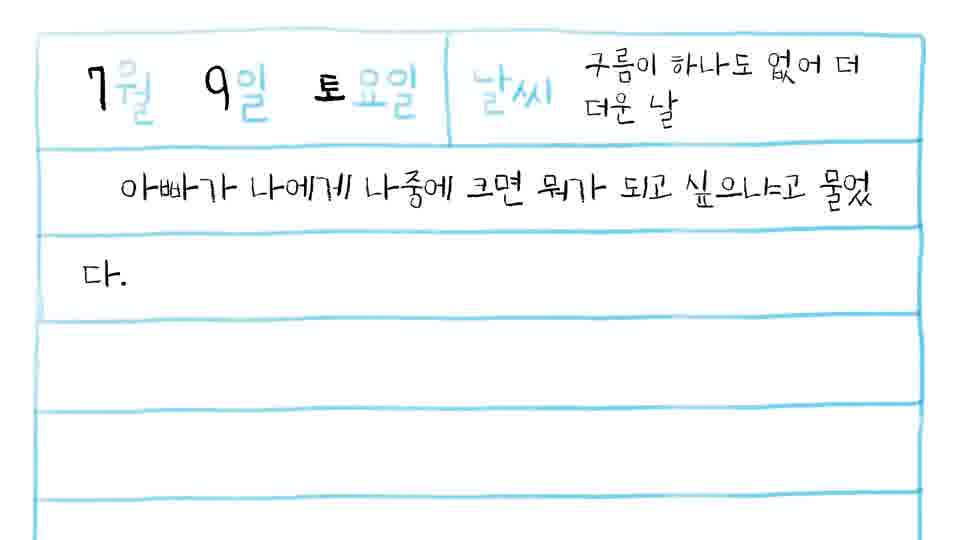 7월 9일 토요일 날씨 구름이 하나도 없어 더
더운 날
아빠가 나에게 나중에 크면 뭐가 되고 싶으냐고 물었
다.